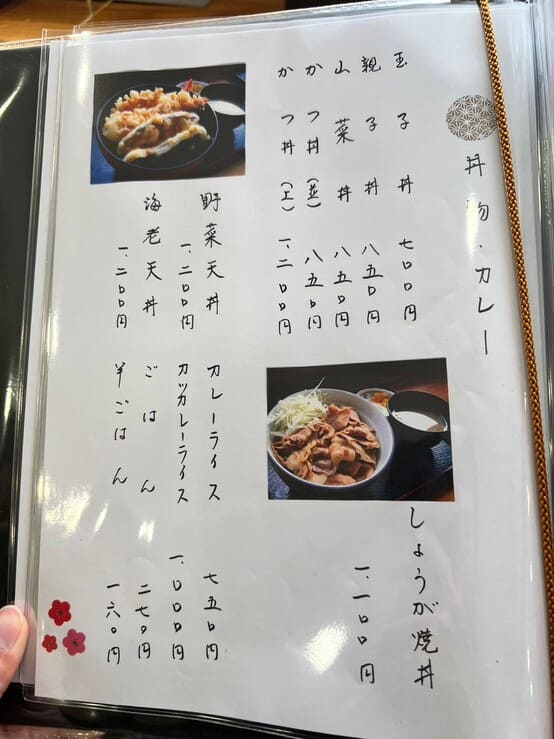 丼物・カレー
玉子丼 七〇〇円
親子丼 八五〇円
山菜丼 八五〇円
かつ丼(並) 八五〇円
かつ丼(上) 一、二〇〇円
しょうが焼丼
一、一〇〇円
野菜天丼
一、二〇〇円
海老天丼
一、二〇〇円
カレーライス 七五〇円
カツカレーライス 一、〇〇〇円
ごはん 二七〇円
半ごはん 一六〇円